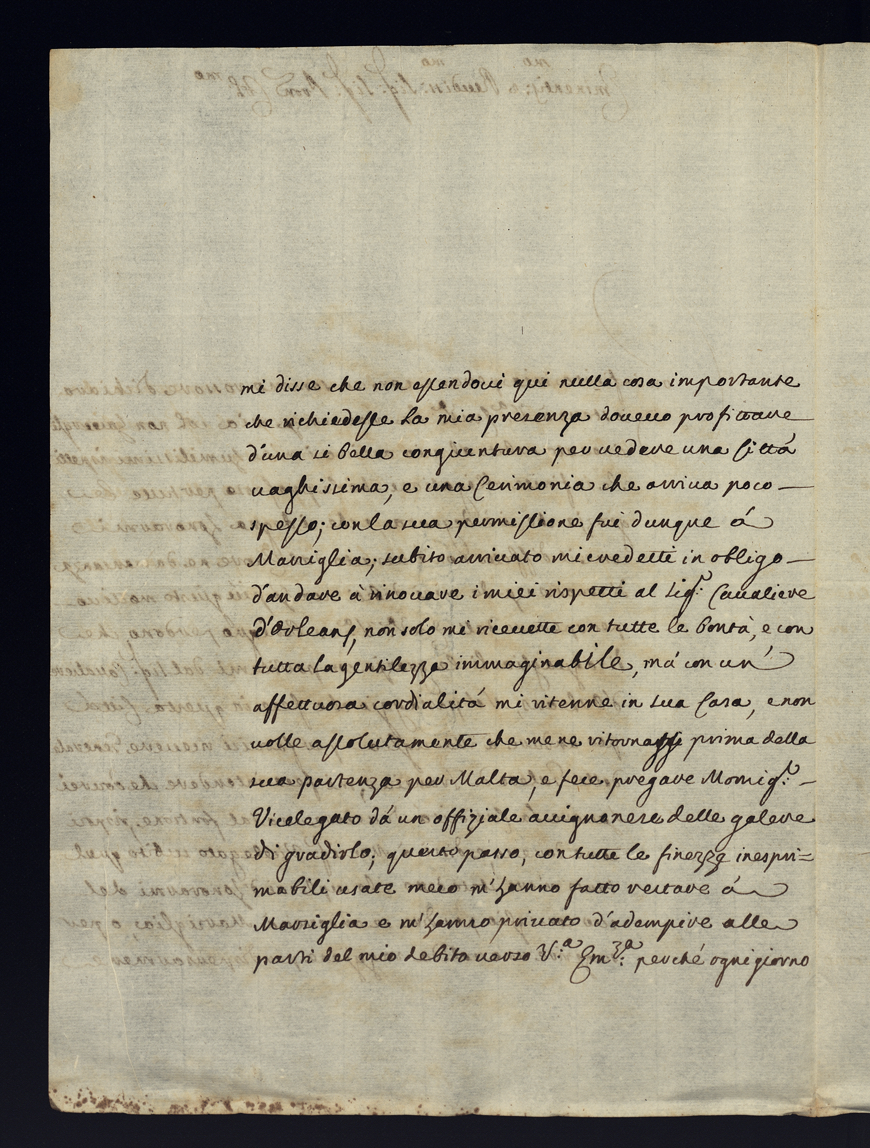 mi disse che non essendoui qui nulla cosa importante
che richiedesse la mia presenza doueuo profittare
d'una si bella congiuntura per uedere una Città
uaghissima, e una Cerimonia che arriua poco
spesso; con la sua permissione fui dunque á
Marsiglia; subito arriuato mi credetti in obligo
d'andare à rinouare i miei rispetti al Sig.r Caualiere
d'Orleans, non solo mi riceuette con tutte le bontà, e con
tutta la gentilezza immaginabile, má con un'
affettuosa cordialitá mi ritenne in sua Casa, e non
uolle assolutamente che me ne ritornassi prima della
sua partenza per Malta, e fece pregare Monsig.r
Vicelegato dá un offiziale auignonese delle galere
di gradirlo; questo passo, con tutte le finezze inespri=
mabili usate meco m'hanno fatto restare á
Marsiglia e m'hanno priuato d'adempire alle
parti del mio debito uerso V.a Em.za perché ogni giorno